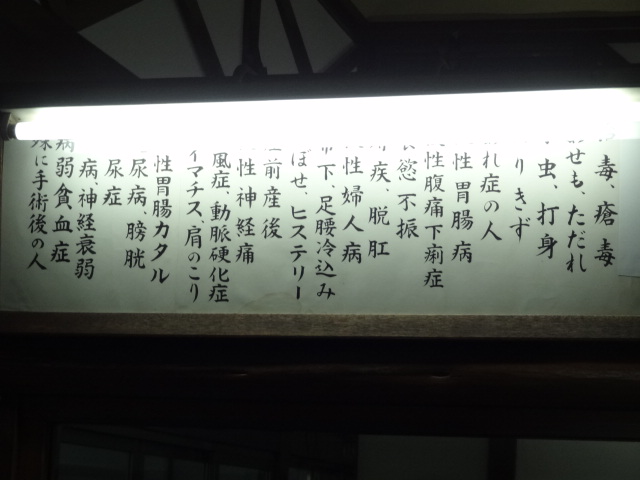 毒、瘡毒
せも、ただれ
虫、打身
りきず
れ症の人
性胃腸病
性腹痛下痢症
慾不振
疾、脱肛
性婦人病
下、足腰冷込み
ぼせ、ヒステリー
前産後
性神経痛
風症、動脈硬化症
イマチス、肩のこり
性胃腸カタル
尿病、膀胱
尿症
病、神経衰弱
病弱貧血症
に手術後の人